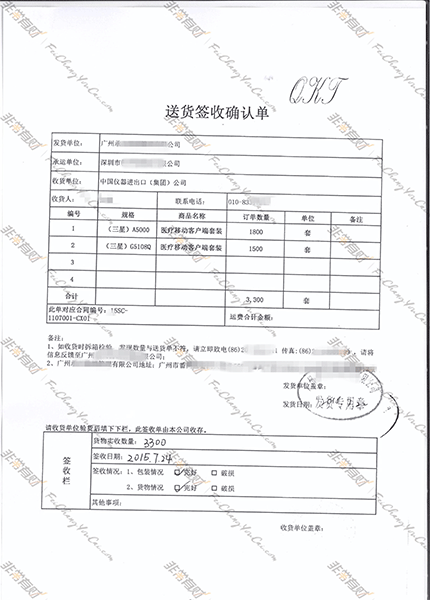 QKT
送货签收确认单
发货单位: 广州 公司
承运单位: 深圳市 公司
收货单位: 中国仪器进出口(集团)公司
收货人: 联系电话: 010-83
编号 规格 商品名称 订单数量 单位 备注
1 (三星)A5000 医疗移动客户端套装 1800 套
2 (三星)G5108Q 医疗移动客户端套装 1500 套
3
4
合计 3,300 套
此单对应合同编号: 15SC- 运费合计金额:
1107001-CX01
备注:
1、如收货时拆箱检验,发现数量与送货单不符,请立即致电(86)2 传真:(86) 请将
信息反馈至广州 公司;
2、广州 有限公司地址: 广州市番
发货单位盖章:
发货日期:
发货专用章
请收货单位验货后填下下栏,此签收单由本公司收存。
签收栏
货物实收数量: 3300
签收日期: 2015.7.24
签收情况: 1、包装情况 □完好 □破损
2、货物情况 □完好 □破损
其他事项:
收货单位盖章:
非常有财
FeiChangYouCai.com